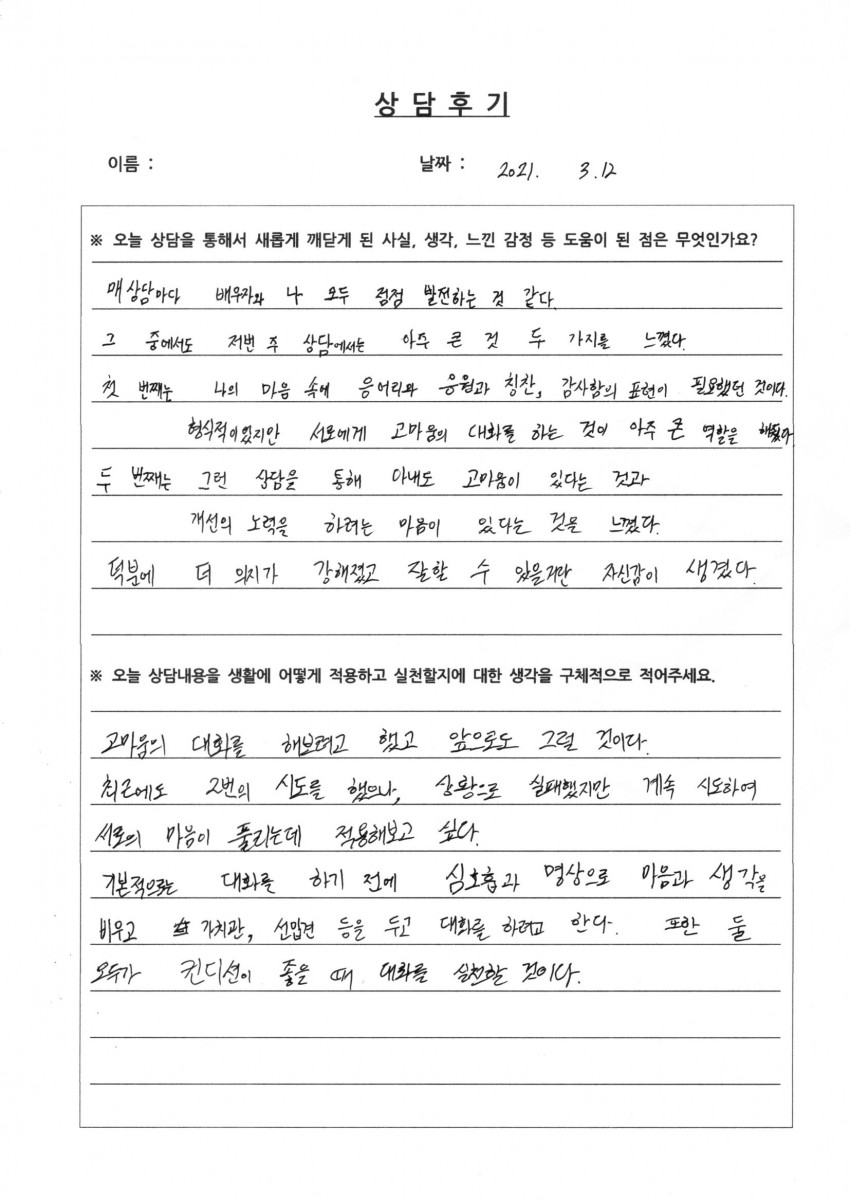 상담후기
이름 : 날짜 : 2021. 3.12
※ 오늘 상담을 통해서 새롭게 깨닫게 된 사실, 생각, 느낀 감정 등 도움이 된 점은 무엇인가요?
매 상담마다 배우자와 나 모두 점점 발전하는 것 같다.
그 중에서도 저번 주 상담에서는 아주 큰 것 두 가지를 느꼈다.
첫 번째는 나의 마음 속에 응어리와 응원과 칭찬, 감사함의 표현이 필요했던 것이다.
형식적이었지만 서로에게 고마움의 대화를 하는 것이 아주 큰 역할을
두 번째는 그런 상담을 통해 아내도 고마움이 있다는 것과
개선의 노력을 하려는 마음이 있다는 것을 느꼈다.
덕분에 더 의지가 강해졌고 잘할 수 있을거란 자신감이 생겼다.
※ 오늘 상담내용을 생활에 어떻게 적용하고 실천할지에 대한 생각을 구체적으로 적어주세요.
고마움의 대화를 해보려고 했고 앞으로도 그럴 것이다.
최근에도 2번의 시도를 했으나, 상황으로 실패했지만 계속 시도하여
서로의 마음이 풀리는데 적용해보고 싶다.
기본적으로는 대화를 하기 전에 심호흡과 명상으로 마음과 생각을
비우고 가치관, 선입견 등을 두고 대화를 하려고 한다. 또한 둘
모두가 컨디션이 좋을 때 대화를 실천할 것이다.